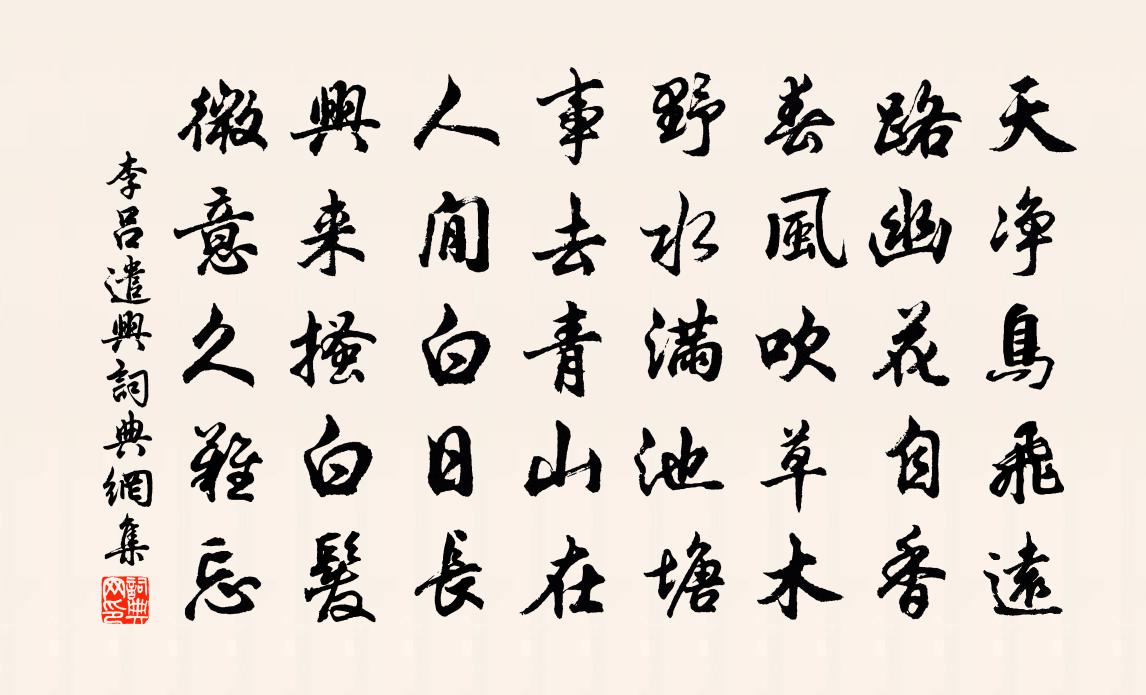 天净鳥飛遠
路幽花自香
春風吹草木
野水滿池塘
事去青山在
人閒白日長
興来搔白髮
微意久難忘
李呂遣興詞典網集
詞典
网印